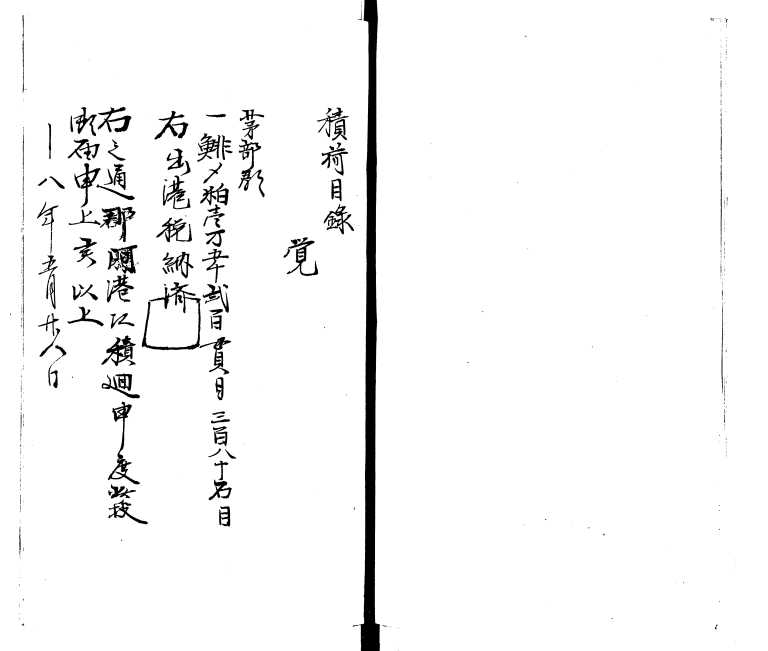 積荷目録
覚
茅部郡
一鯡〆粕壱万五千弐百貫目三百八十石目
右出港税納済
右之通那珂港江積廻申度此段
御届申上候以上
八年五月廿八日